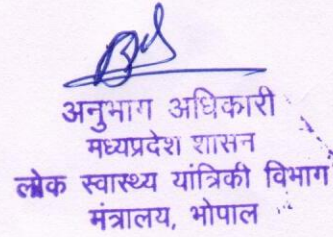 अनुभाग अधिकारी
मध्यप्रदेश शासन
लोक स्वास्थ्य यांत्रिकी विभाग
मंत्रालय, भोपाल